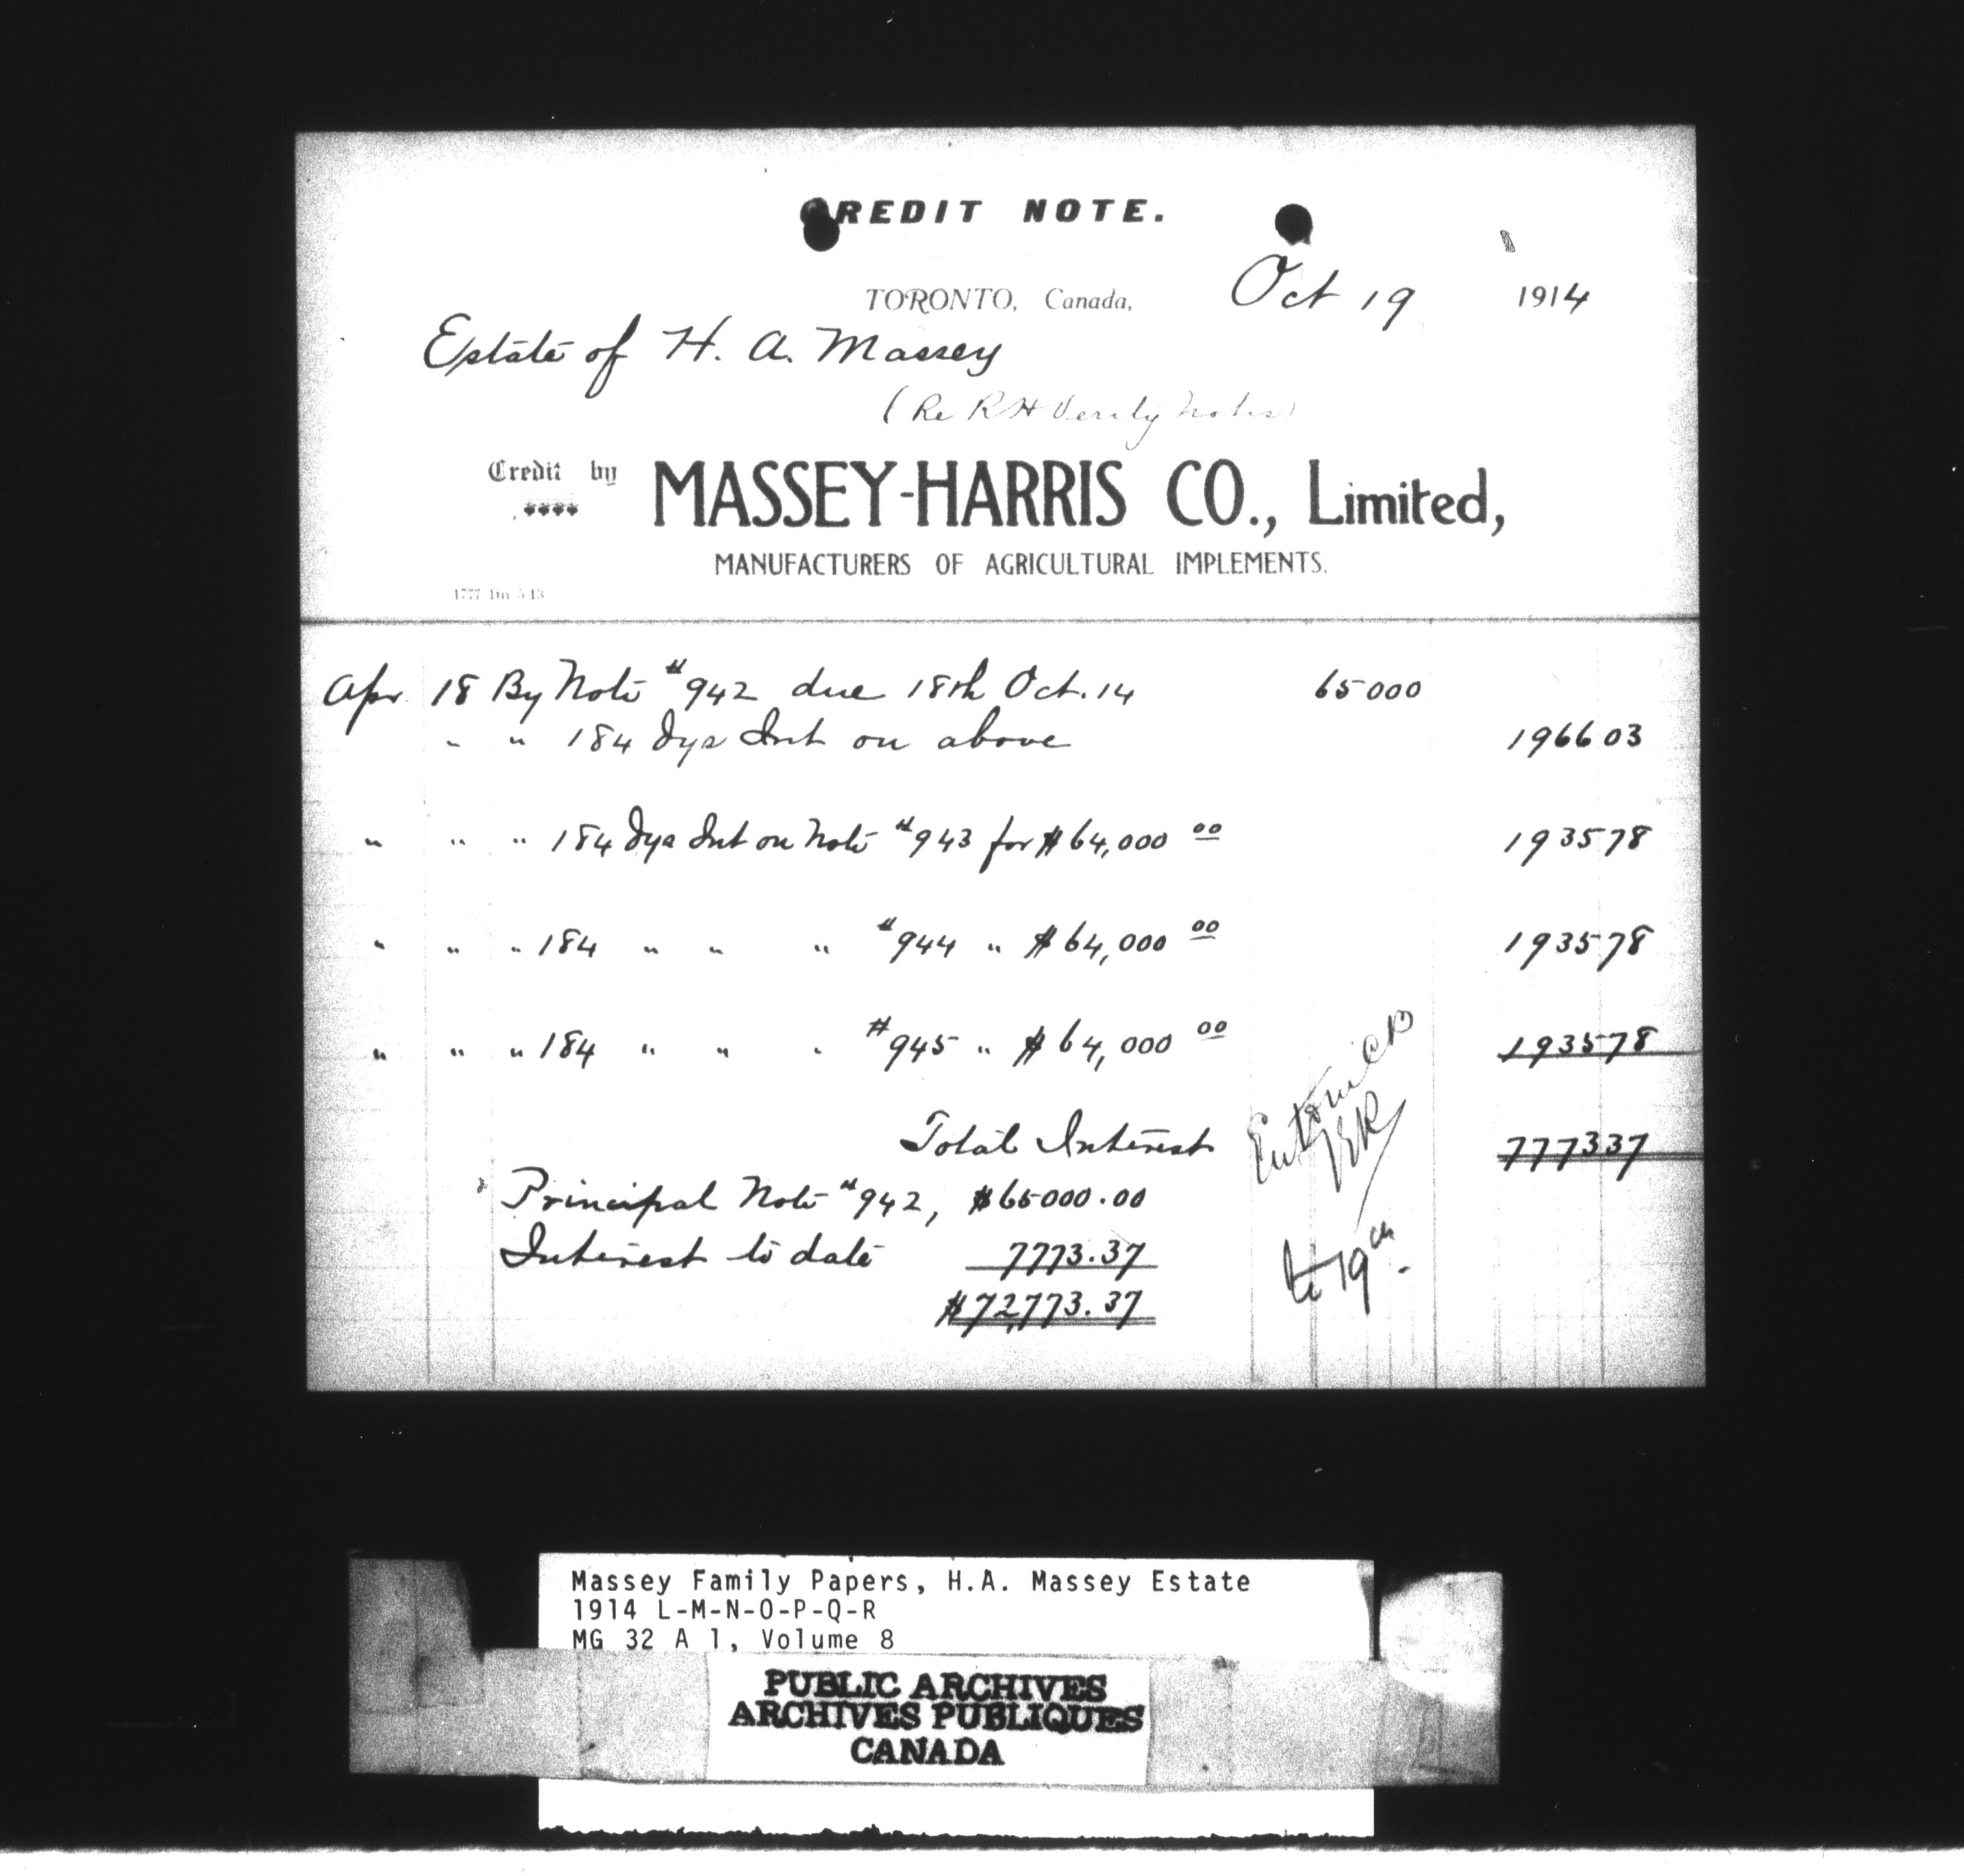 CREDIT NOTE.
TORONTO, Canada, Oct 19 1914
Estate of H. A. Massey
(Re R H Verity Notes)
Credit by MASSEY-HARRIS CO., Limited,
MANUFACTURERS OF AGRICULTURAL IMPLEMENTS.
Apr. 18 By Note #942 due 18th Oct. 14 65000
" " 184 dys Int on above 1966 03
" " " 184 dys Int on Note #943 for $64,000 00 1935 78
" " " 184 " " " #944 " $64,000 00 1935 78
" " " 184 " " " #945 " $64,000 00 1935 78
Total Interest 7773 37
Principal Note #942, $65000.00
Interest to date 7773.37
$72,773.37
to 19th.
Massey Family Papers, H.A. Massey Estate
1914 L-M-N-O-P-Q-R
MG 32 A 1, Volume 8
PUBLIC ARCHIVES
ARCHIVES PUBLIQUES
CANADA